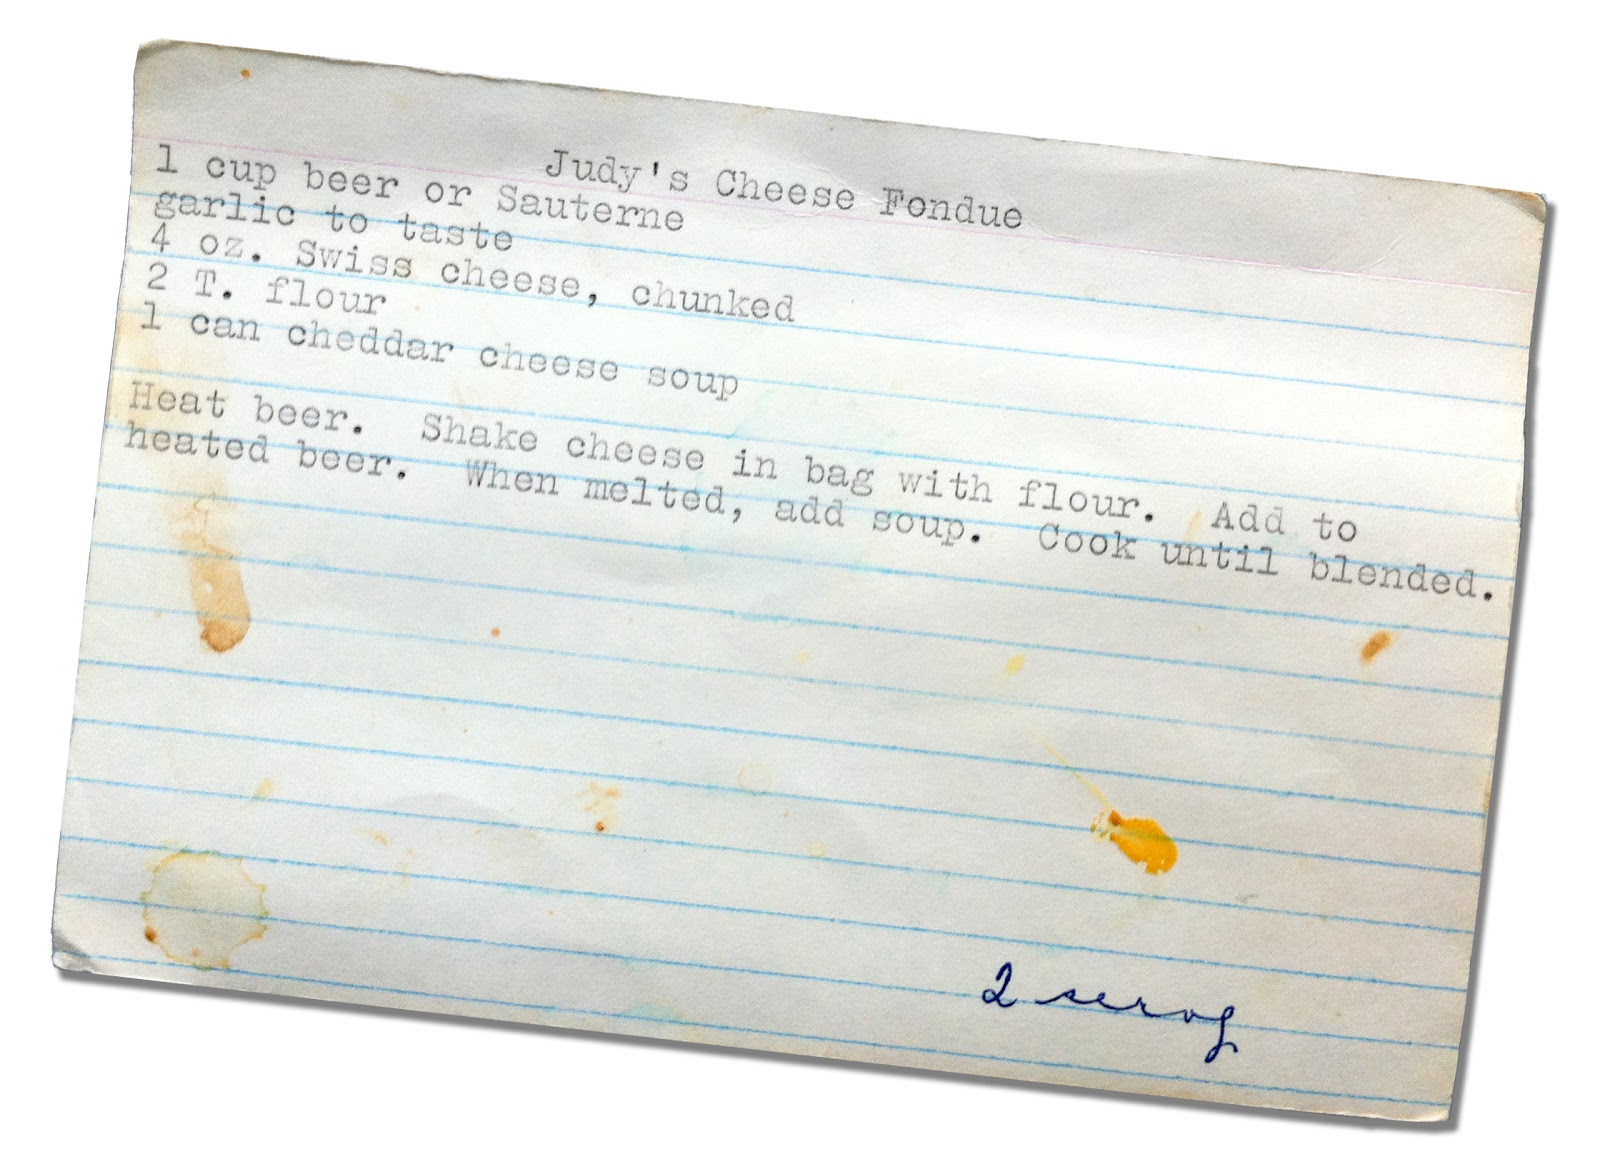 Judy's Cheese Fondue
1 cup beer or Sauterne
garlic to taste
4 oz. Swiss cheese, chunked
2 T. flour
1 can cheddar cheese soup
Heat beer. Shake cheese in bag with flour. Add to
heated beer. When melted, add soup. Cook until blended.
2 servg